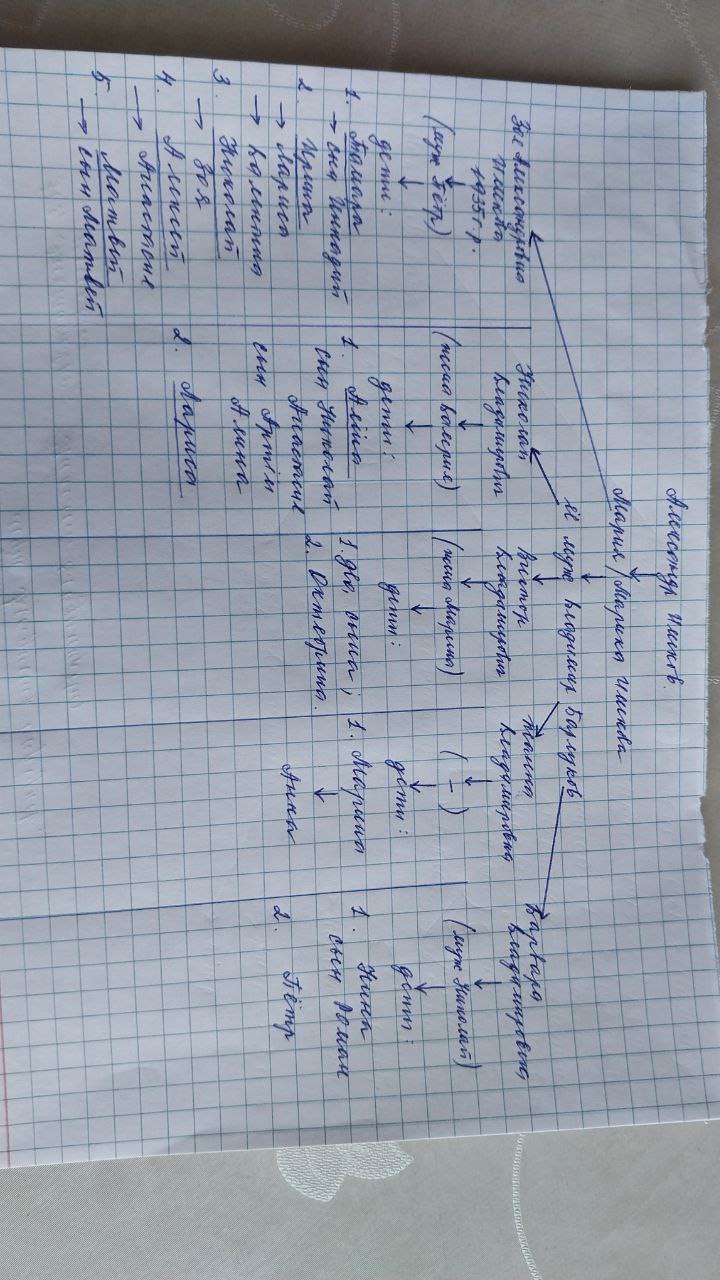 Александр Ишков.
Мария / Марика Ишкова
Её муж Владимир Барцуков
Зоя Александровна
Ишкова
1935 г.р.
(муж Пётр)
дети:
1. Тамара
→ сын Геннадий
2. Ирина
→ Лариса
→ Валентина
3. Николай
→ Зоя
4. Алексей
→ Анастасия
5. Матвей
→ сын Матвей
Николай
Владимирович
(жена Валерия)
дети:
1. Алёна
сын Николай
Анастасия
сын Артём
Алина
2. Лариса
Виктор
Владимирович
(жена Марина)
дети:
1. два сына;
2. Октябрина.
Жанна
Владимировна
( – )
дети:
1. Марина
Анна
Варвара
Владимировна
(муж Николай)
дети:
1. Нина
сын Роман
2. Пётр